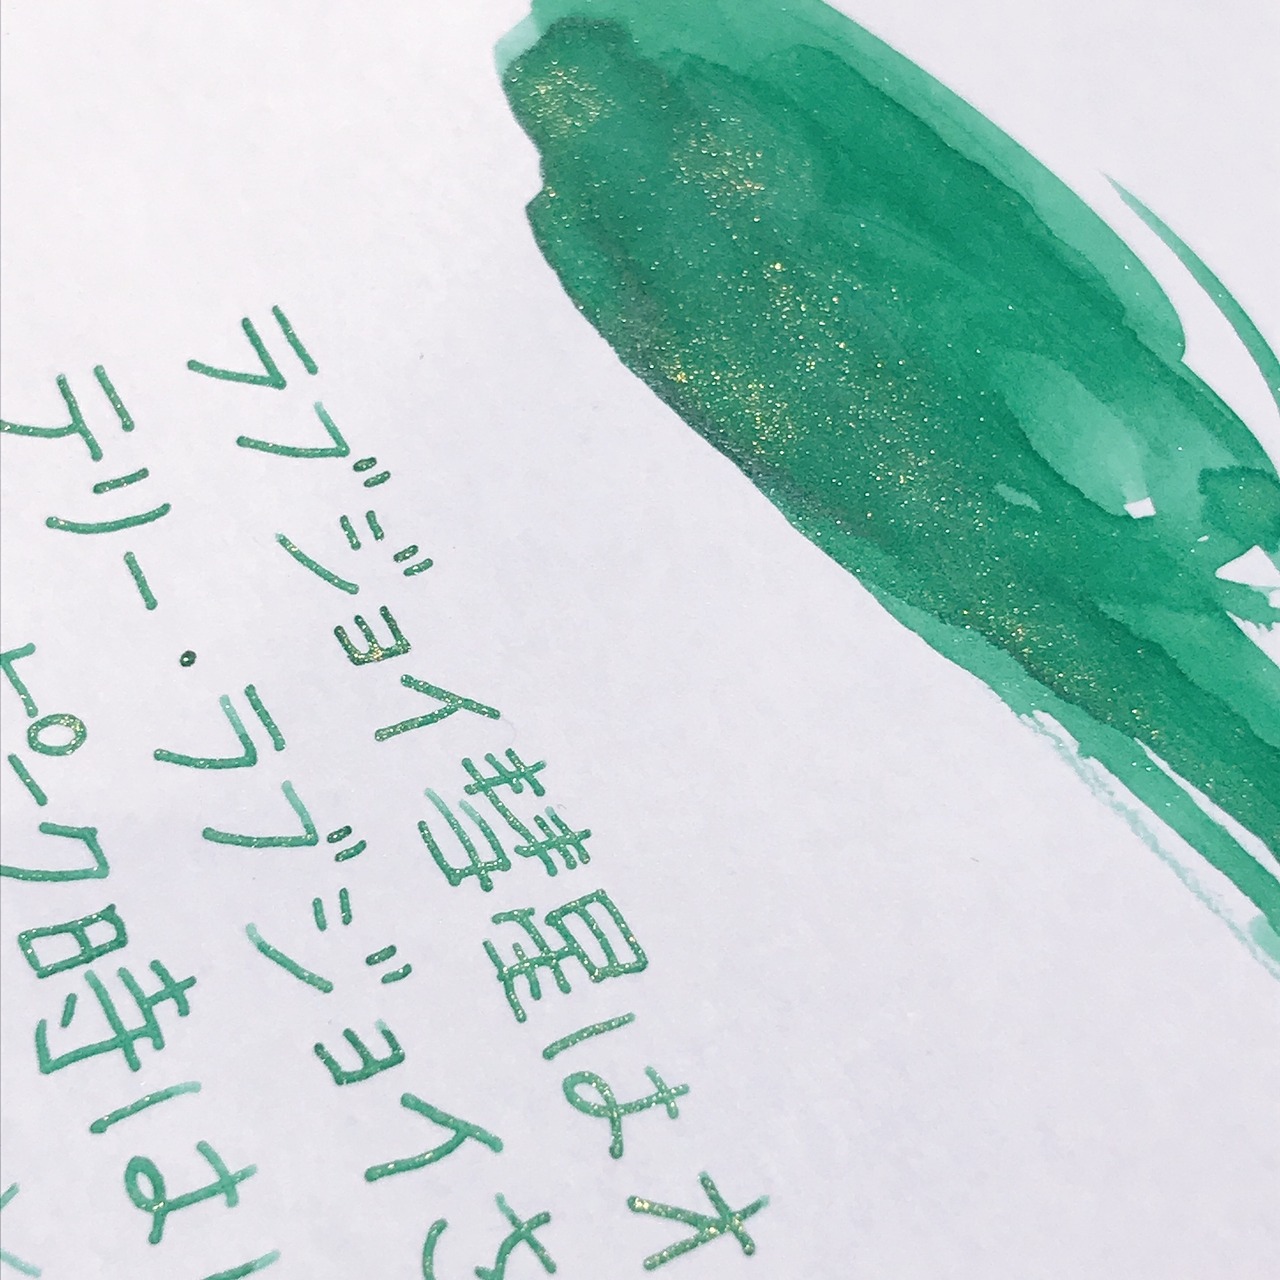 ラブジョイ彗星はオ
テリー・ラブジョイさ
ピーク時は